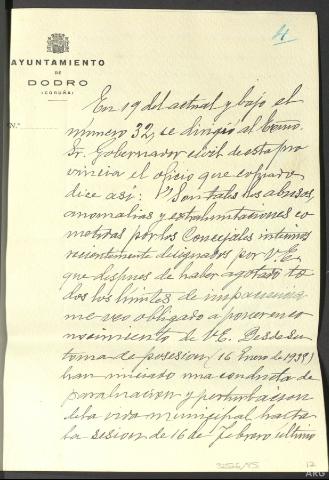 4
AYUNTAMIENTO
DE
DODRO
(CORUÑA)
N.º
En 19 del actual y bajo el
número 32, se dirigió al Excmo.
Sr. Gobernador civil de esta pro
vincia el oficio que copiado
dice así: "Son tales los abusos,
anomalias y extralimitaciones co
metidas por los Concejales interinos
recientemente designados por V.E.
que despues de haber agotado to
dos los limites de
me veo obligado a poner en co
nocimiento de V.E. Desde su
toma de posesion (16 Enero de 1935)
han iniciado una conducta de
paralizacion y perturbacion
de la vida municipal hasta
la sesion de 16 de Febrero último
12
ARG